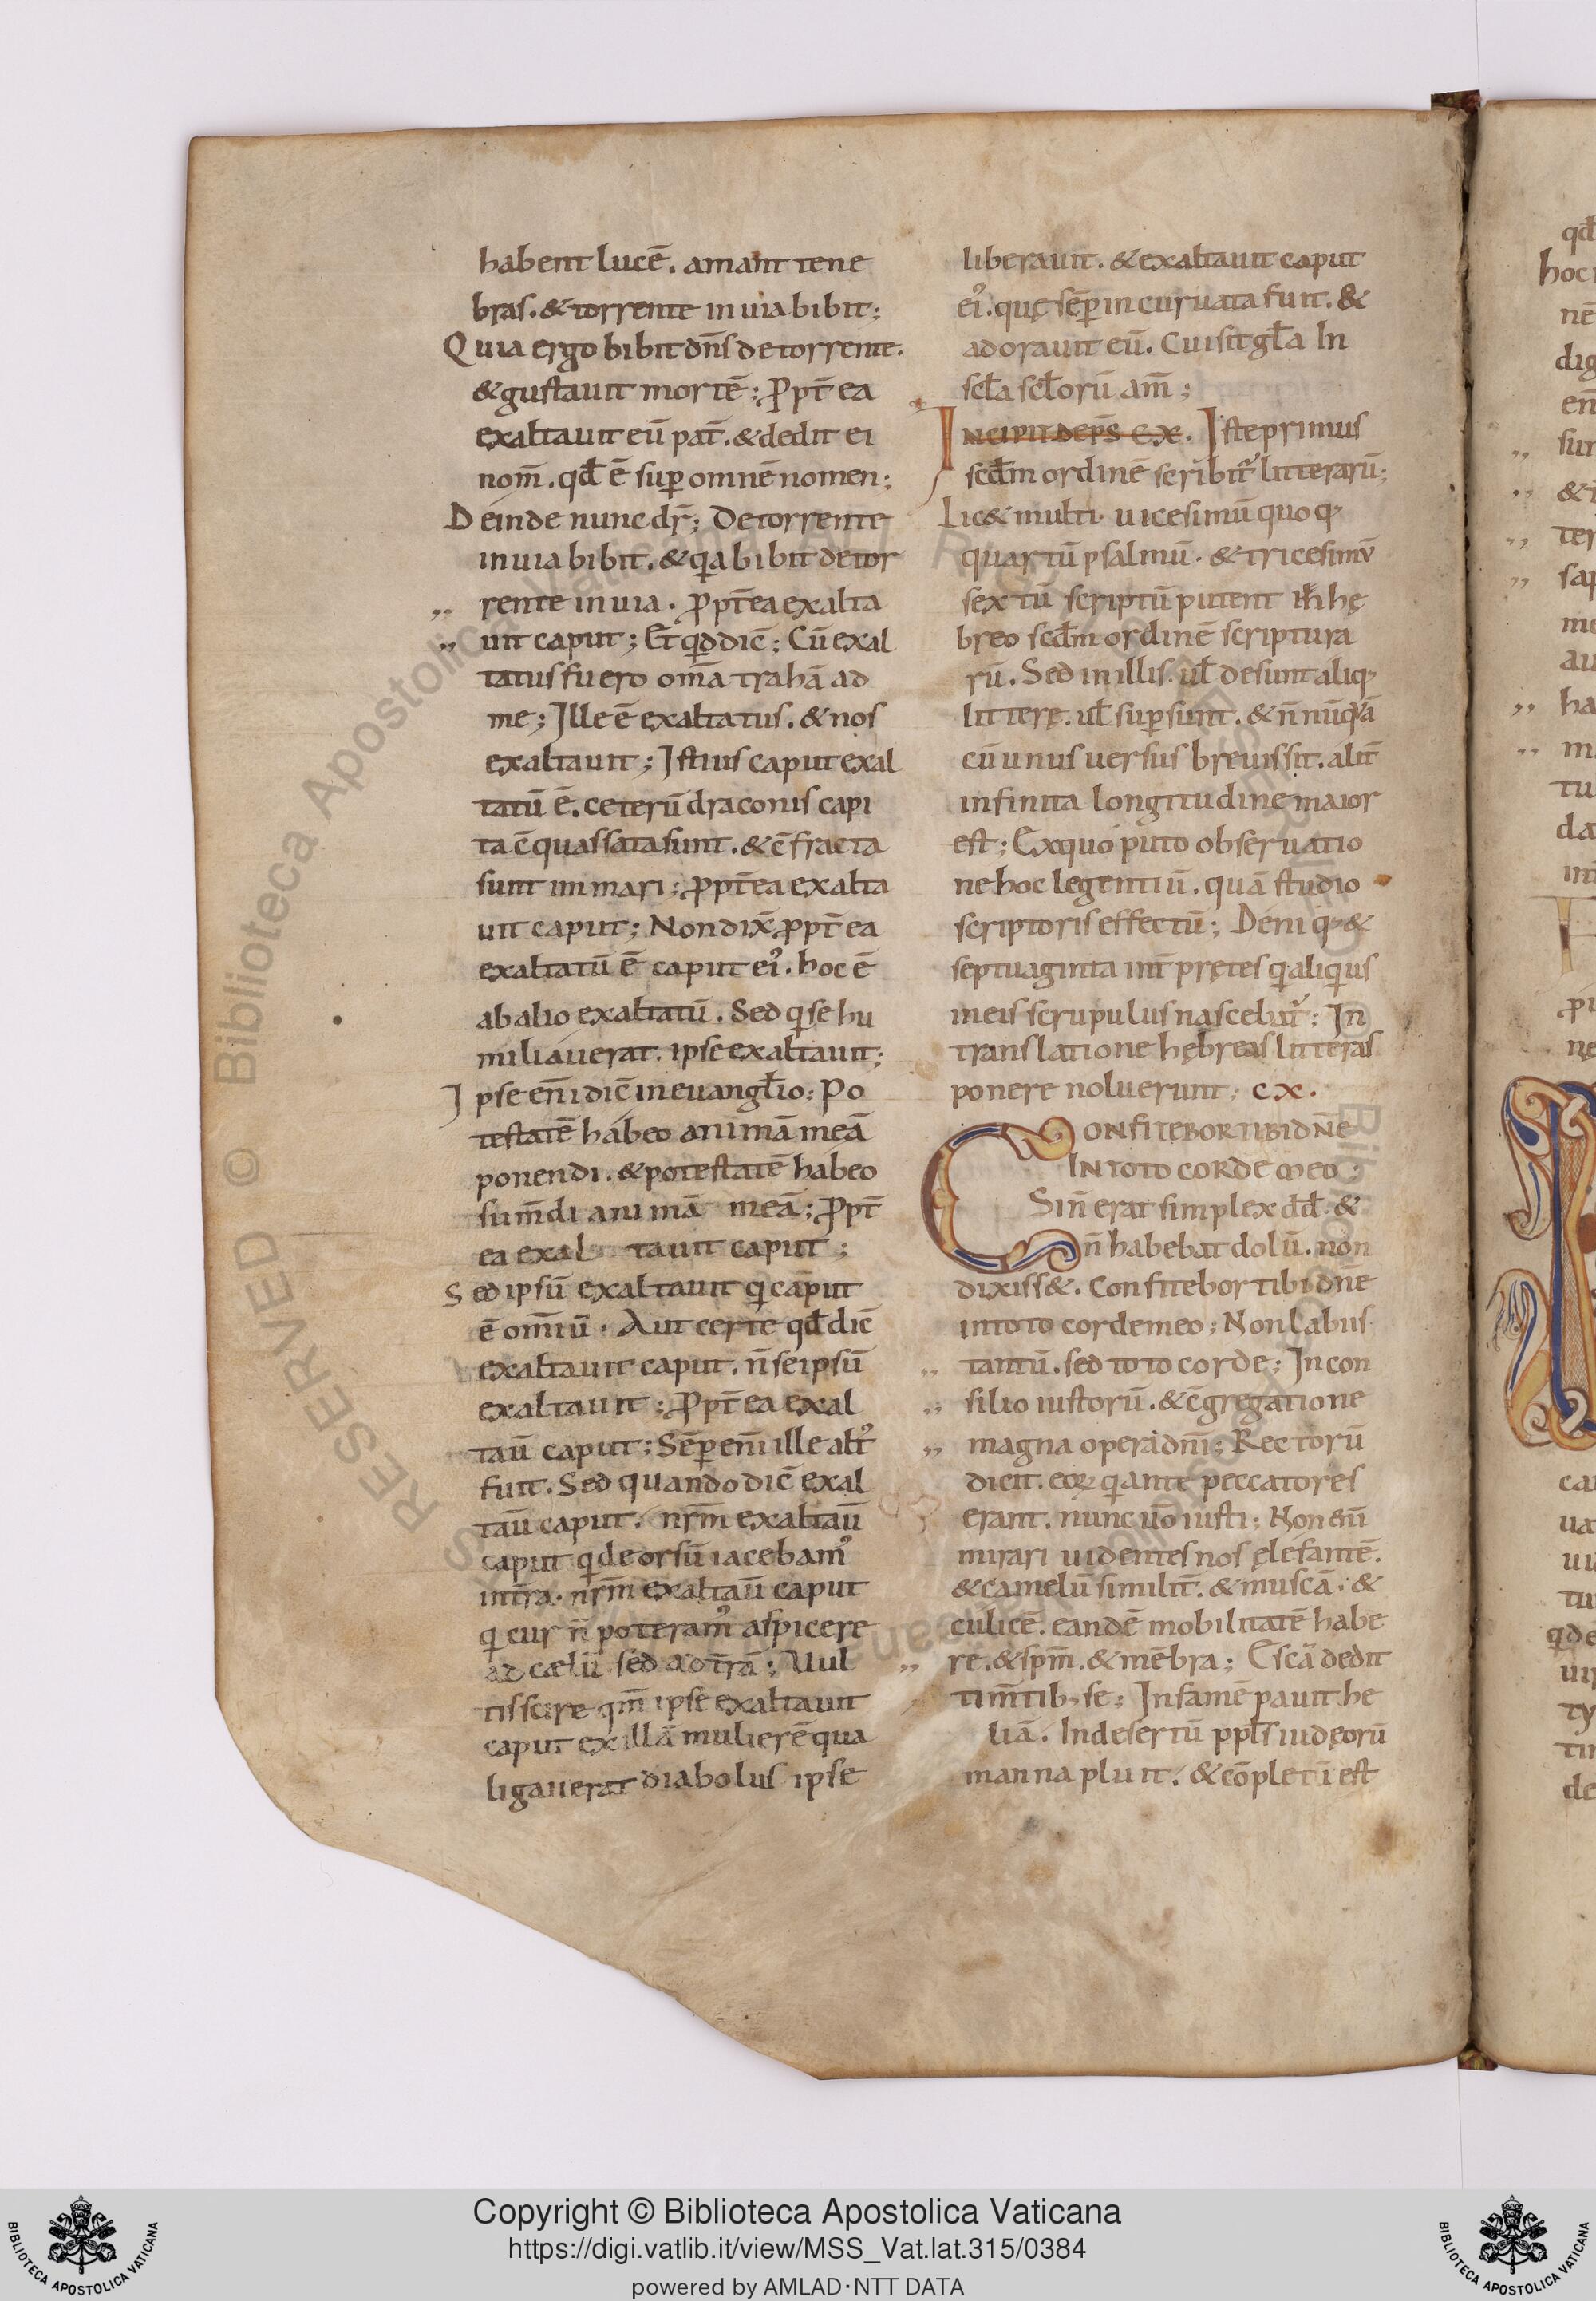 habent lucē. amant tene
bras. & torrente in uia bibit;
Quia ergo bibit dn̄s de torrente.
& gustauit mortē; ꝓpt̄ ea
exaltauit eū pat̄. & dedit ei
nom̄. qđ ē sup̄ omnē nomen;
Deinde nunc dr̄; De torrente
in uia bibit. & qa bibit de tor
rente in uia. ꝓpt̄ea exalta
uit caput; Et qd dic̄; Cū exal
tatus fuero om̄a trahā ad
me; Ille ē exaltatus. & nos
exaltauit; Istius caput exal
tatū ē. ceterū draconis capi
ta c̄quassata sunt. & c̄fracta
sunt in mari; ꝓpt̄ea exalta
uit caput; Non dix̄ ꝓpt̄ ea
exaltatū ē caput ei᾿. hoc ē
ab alio exaltatū. Sed q se hu
miliauerat. ipse exaltauit;
Ipse en̄i dic̄ in euangł̄io; Po
testatē habeo animā meā
ponendi. & potestatē habeo
sum̄di animā meā; ꝓpt̄
ea exaltauit caput;
Sed ipsū exaltauit q caput
ē om̄iū. Aut certe qđ dic̄
exaltauit caput. n̄ se ipsū
exaltauit; ꝓpt̄ ea exal
taū caput; Sēp en̄i ille alt᾿
fuit. Sed quando dic̄ exal
taū caput. nr̄m exaltaū
caput q deorsū iacebam᾿
int̄ra. nr̄m exaltaū caput
q cur n̄ poteram᾿ aspicere
ad cælū sed ad t̄rā; Uul
tis scire qm̄ ipse exaltauit
caput ex illā mulierē qua
ligauerat diabolus ipse
liberauit. & exaltauit caput
ei᾿. quę sēp incuruata fuit. &
adorauit eū. Cui sit gł̄a In
scł̄a scł̄orū am̄;
Incipit de ps̄ cx. Iste primus
scđm ordinē scribit᾿ litterarū;
Lic& multi. uicesimū quoq;
quartū psalmū. & tricesimū
sextū scriptū putent in hę
breo scđm ordinē scriptura
rū. Sed in illis. uł desunt aliq;
litterę. uł sup̄sunt. & n̄nūquā
cū unus uersus breuis sit. alit̄
infinita longitudine maior
est; Ex quo puto obseruatio
ne hoc legentiū. quā studio
scriptoris effectū; Deniq; &
septuaginta int̄pretes q aliqus
meis scrupulus nascebat᾿; In
translatione hębreas litteras
ponere noluerunt; cx.
CONFITEBOR TIBI DN̄E
IN TOTO CORDE MEO;
Sin̄ erat simplex dđ. &
n̄ habebat dolū. non
dixiss&. Confitebor tibi dn̄e
in toto corde meo; Non labiis
tantū. sed toto corde; In con
silio iustorū. & c̄gregatione
magna opera dn̄i; Rectorū
dicit. eoꝝ q ante peccatores
erant. nunc uō iusti; Non en̄
mirari uidentes nos ęlefantē.
& camelū similit̄. & muscā. &
culicē. eandē mobilitatē habe
re. & spm̄. & mēbra; Escā dedit
tim̄tib; se; In famē pauit he
liā. In desertū ppls̄ iudęorū
manna pluit. & cōplet ī est